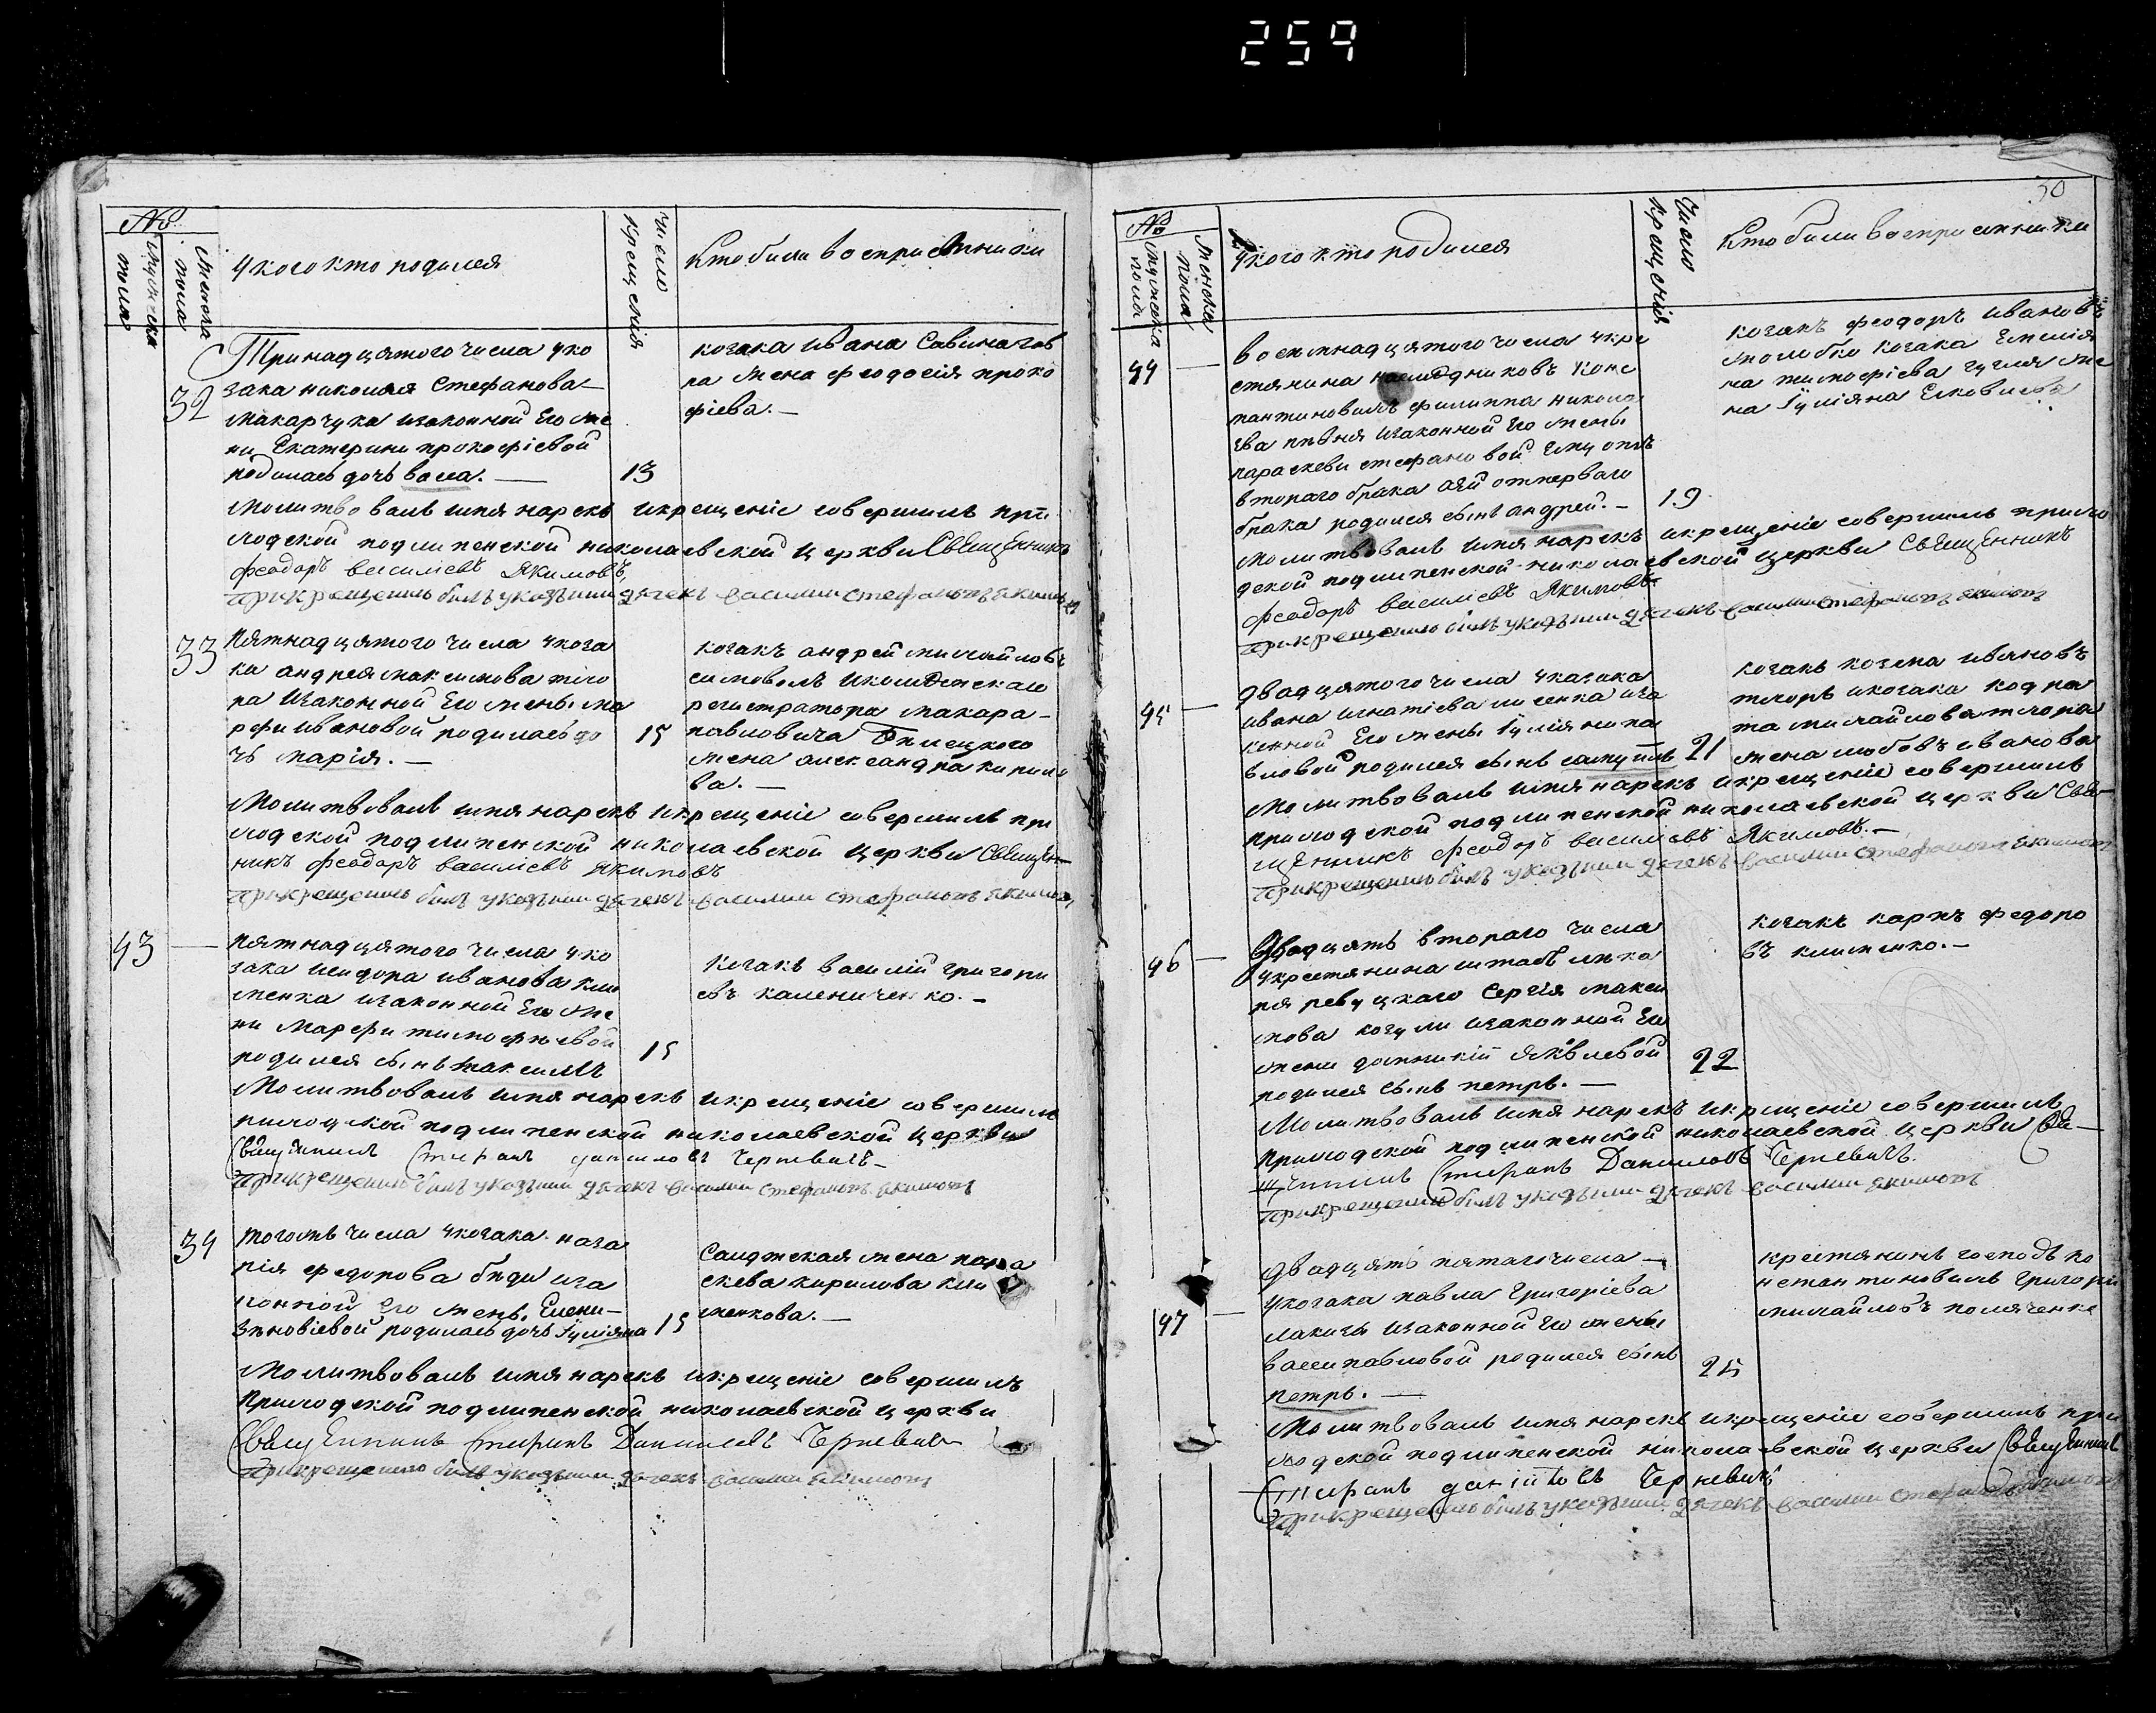 259
30
№
мужеска пола
женска пола
у кого кто родился
число крещенія
кто были воспріемники
32
Тринадцятого числа у ко
зака николая Стефанова
макарчука изаконной Его же
ни Екатерини прокофіевой
родилась дочь васа.
13
козака ивана Савина
жена феодосія проко
фіева.
молитвовалъ имя нарекъ и крещеніе совершилъ при
ходской подлипенской николаевской церкви Священникъ
феодоръ василіевъ Якимовъ
при крещении былъ указный дячекъ василий стефановъ якимовъ
33
пятнадцятого числа у коза
ка андрея максимова
ра изаконной Его жены ма
рфи ивановой родилась до
чь марія.
15
козакъ андрей михайловъ
регистратора макара
павловича
жена александра кирило
ва.
молитвовалъ имя нарекъ и крещеніе совершилъ при
ходской подлипенской николаевской церкви Священ
никъ феодоръ василіевъ якимовъ
при крещении былъ указный дячекъ василий стефановъ якимовъ
43
пятнадцятого числа у ко
зака исидора иванова кли
менка изаконной Его же
ни марфи тимофіевой
родился сынъ максимъ
15
козакъ василій григори
евъ калениченко.
молитвовалъ имя нарекъ и крещеніе совершилъ
приходской подлипенской николаевской церкви
Священникъ Стефанъ даниловъ Черневичъ
при крещении былъ указный дячекъ василий стефановъ якимовъ
34
того жъ числа у козака наза
рія федорова биди иза
конной Его жены Елени
Зѣновіевой родилась дочь Іуліяна
15
жена пара
скева кирилова кли
менкова.
молитвовалъ имя нарекъ и крещеніе совершилъ
приходской подлипенской николаевской церкви
Священникъ Стефанъ Даниловъ Черневичъ
при крещении былъ указный дячекъ василий якимовъ
№
мужеска пола
женска пола
у кого кто родился
число крещенія
кто были воспріемники
44
восемнадцятого числа у кре
стянина наследниковъ конс
тантиновичъ филиппа никола
ева изаконной Его жены
параскеви стефановой Ему отъ
втораго брака а ей от перваго
брака родился сынъ андрей.
19
козакъ феодоръ ивановъ
козака Емелія
на тимофіева же
на Іуліяна
молитвовалъ имя нарекъ и крещеніе совершилъ прихо
дской подлипенской николаевской церкви Священникъ
феодоръ василіевъ Якимовъ
при крещении былъ указный дячекъ василий стефановъ якимовъ
45
двадцятого числа у козака
ивана игнатіева иза
конной Его жены Іуліяни па
вловой родился сынъ самуилъ
21
козакъ козма ивановъ
и козака кодра
та михайлова
жена любовъ иванова
молитвовалъ имя нарекъ и крещеніе совершилъ
приходской подлипенской николаевской церкви Свя
щенникъ феодоръ василіевъ Якимовъ.
при крещении былъ указный дячекъ василий стефановъ якимовъ
46
Двадцять втораго числа
у крестянина штабъ лѣка
ря ревуцкаго Сергія макси
мова изаконной Его
жени домникіи Яковлевой
родился сынъ петръ.
22
козакъ карпъ федоро
въ клименко.
молитвовалъ имя нарекъ и крещеніе совершилъ
приходской подлипенской николаевской церкви Свя
щенникъ Стефанъ Даниловъ Черневичъ.
при крещении былъ указный дячекъ василий якимовъ
47
Двадцять пятаго числа
у козака павла Григоріева
изаконной Его жены
васи павловой родился сынъ
петръ.
25
крестянинъ господъ ко
нстантиновичъ григорій
михайловъ
молитвовалъ имя нарекъ и крещеніе совершилъ при
ходской подлипенской николаевской церкви Священникъ
Стефанъ даниловъ Черневичъ
при крещении былъ указный дячекъ василий стефановъ якимовъ